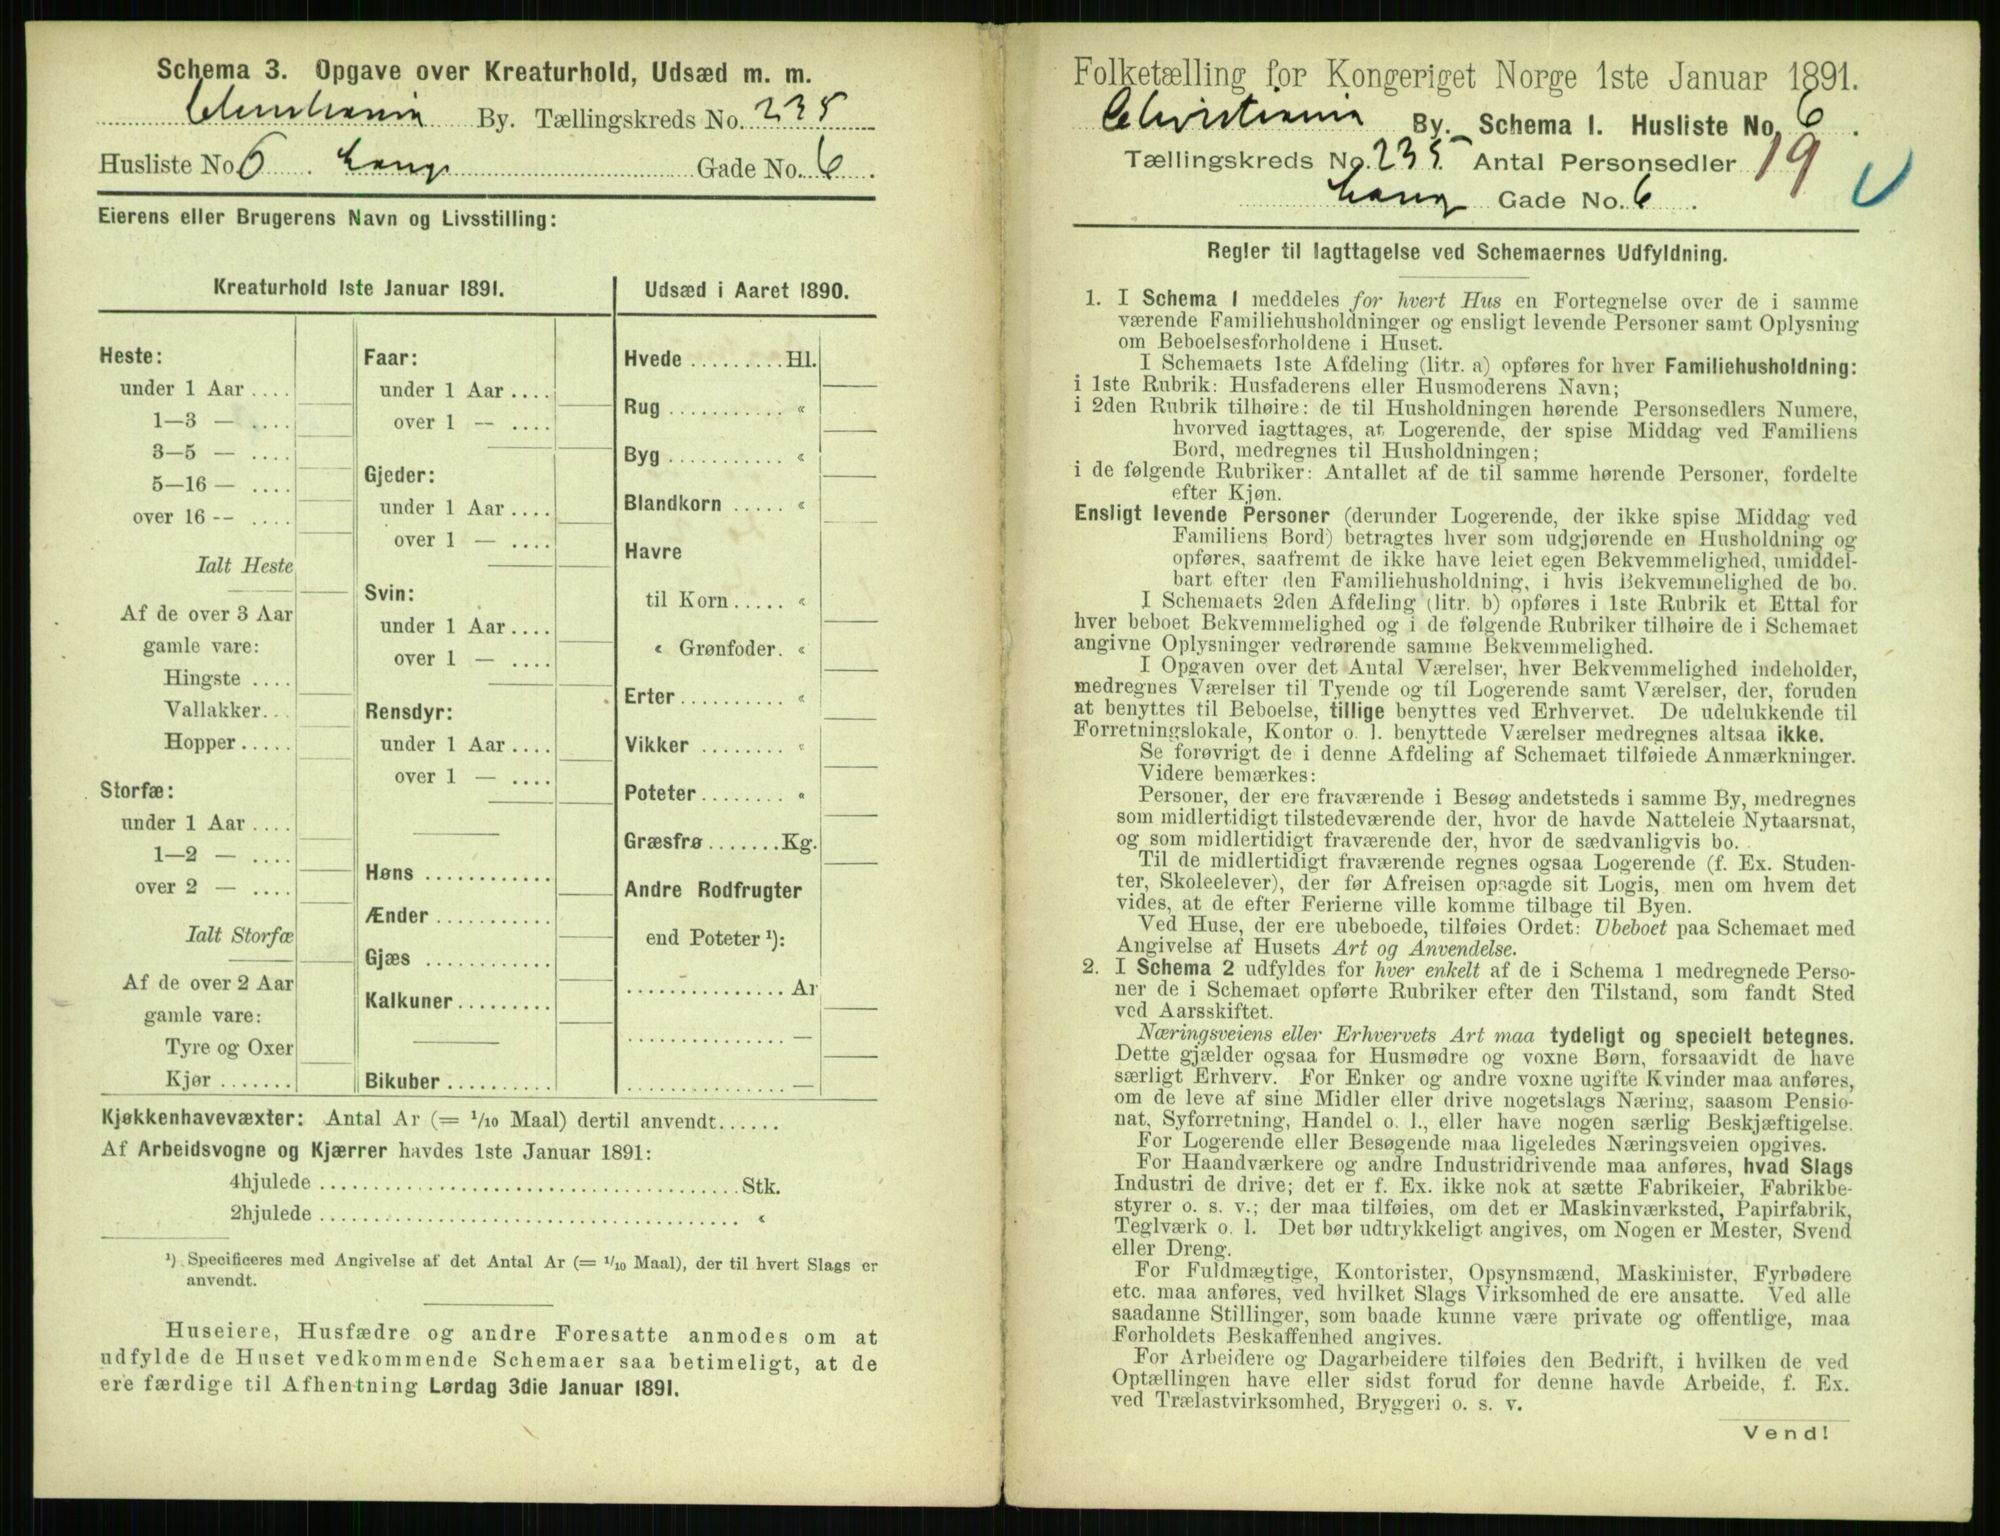 Schema 3. Opgave over Kreaturhold, Udsæd m. m.
Christiania By. Tællingskreds No. 235
Husliste No. 6. Lange Gade No. 6.
Eierens eller Brugerens Navn og Livsstilling:
Kreaturhold 1ste Januar 1891.
Heste:
under 1 Aar ....
1—3 — ....
3—5 — ....
5—16 — ....
over 16 -- ....
Ialt Heste
Af de over 3 Aar
gamle vare:
Hingste ....
Vallakker...
Hopper.....
Storfæ:
under 1 Aar ....
1—2 — ....
over 2 — ....
Ialt Storfæ
Af de over 2 Aar
gamle vare:
Tyre og Oxer
Kjør .......
Faar:
under 1 Aar ....
over 1 — ....
Gjeder:
under 1 Aar ....
over 1 — ....
Svin:
under 1 Aar....
over 1 — ....
Rensdyr:
under 1 Aar ....
over 1 — ....
Høns ............
Ænder ...........
Gjæs ............
Kalkuner.........
Bikuber ..........
Udsæd i Aaret 1890.
Hvede .........Hl.
Rug ........... «
Byg ........... «
Blandkorn ..... «
Havre
til Korn..... «
« Grønfoder. «
Erter.......... «
Vikker ........ «
Poteter........ «
Græsfrø .......Kg.
Andre Rodfrugter
end Poteter ¹):
............... Ar
............... —
............... —
Kjøkkenhavevæxter: Antal Ar (= 1/10 Maal) dertil anvendt......
Af Arbeidsvogne og Kjærrer havdes 1ste Januar 1891:
4hjulede ........................................Stk.
2hjulede ........................................ «
¹) Specificeres med Angivelse af det Antal Ar (= 1/10 Maal), der til hvert Slags er
anvendt.
Huseiere, Husfædre og andre Foresatte anmodes om at
udfylde de Huset vedkommende Schemaer saa betimeligt, at de
ere færdige til Afhentning Lørdag 3die Januar 1891.
Folketælling for Kongeriget Norge 1ste Januar 1891.
Christiania By. Schema 1. Husliste No. 6.
Tællingskreds No. 235. Antal Personsedler 19
Lange Gade No. 6.
Regler til Iagttagelse ved Schemaernes Udfyldning.
1. I Schema 1 meddeles for hvert Hus en Fortegnelse over de i samme
værende Familiehusholdninger og ensligt levende Personer samt Oplysning
om Beboelsesforholdene i Huset.
I Schemaets 1ste Afdeling (litr. a) opføres for hver Familiehusholdning:
i 1ste Rubrik: Husfaderens eller Husmoderens Navn;
i 2den Rubrik tilhøire: de til Husholdningen hørende Personsedlers Numere,
hvorved iagttages, at Logerende, der spise Middag ved Familiens
Bord, medregnes til Husholdningen;
i de følgende Rubriker: Antallet af de til samme hørende Personer, fordelte
efter Kjøn.
Ensligt levende Personer (derunder Logerende, der ikke spise Middag ved
Familiens Bord) betragtes hver som udgjørende en Husholdning og
opføres, saafremt de ikke have leiet egen Bekvemmelighed, umiddel-
bart efter den Familiehusholdning, i hvis Bekvemmelighed de bo.
I Schemaets 2den Afdeling (litr. b) opføres i 1ste Rubrik et Ettal for
hver beboet Bekvemmelighed og i de følgende Rubriker tilhøire de i Schemaet
angivne Oplysninger vedrørende samme Bekvemmelighed.
I Opgaven over det Antal Værelser, hver Bekvemmelighed indeholder,
medregnes Værelser til Tyende og til Logerende samt Værelser, der, foruden
at benyttes til Beboelse, tillige benyttes ved Erhvervet. De udelukkende til
Forretningslokale, Kontor o. l. benyttede Værelser medregnes altsaa ikke.
Se forøvrigt de i denne Afdeling af Schemaet tilføiede Anmærkninger.
Videre bemærkes:
Personer, der ere fraværende i Besøg andetsteds i samme By, medregnes
som midlertidigt tilstedeværende der, hvor de havde Natteleie Nytaarsnat,
og som midlertidigt fraværende der, hvor de sædvanligvis bo.
Til de midlertidigt fraværende regnes ogsaa Logerende (f. Ex. Studen-
ter, Skoleelever), der før Afreisen opsagde sit Logis, men om hvem det
vides, at de efter Ferierne ville komme tilbage til Byen.
Ved Huse, der ere ubeboede, tilføies Ordet: Ubeboet paa Schemaet med
Angivelse af Husets Art og Anvendelse.
2. I Schema 2 udfyldes for hver enkelt af de i Schema 1 medregnede Perso-
ner de i Schemaet opførte Rubriker efter den Tilstand, som fandt Sted
ved Aarsskiftet.
Næringsveiens eller Erhvervets Art maa tydeligt og specielt betegnes.
Dette gjælder ogsaa for Husmødre og voxne Børn, forsaavidt de have
særligt Erhverv. For Enker og andre voxne ugifte Kvinder maa anføres,
om de leve af sine Midler eller drive nogetslags Næring, saasom Pensio-
nat, Syforretning, Handel o. l., eller have nogen særlig Beskjæftigelse.
For Logerende eller Besøgende maa ligeledes Næringsveien opgives.
For Haandværkere og andre Industridrivende maa anføres, hvad Slags
Industri de drive; det er f. Ex. ikke nok at sætte Fabrikeier, Fabrikbe-
styrer o. s. v.; der maa tilføies, om det er Maskinværksted, Papirfabrik,
Teglværk o. l. Det bør udtrykkeligt angives, om Nogen er Mester, Svend
eller Dreng.
For Fuldmægtige, Kontorister, Opsynsmænd, Maskinister, Fyrbødere
etc. maa anføres, ved hvilket Slags Virksomhed de ere ansatte. Ved alle
saadanne Stillinger, som baade kunne være private og offentlige, maa
Forholdets Beskaffenhed angives.
For Arbeidere og Dagarbeidere tilføies den Bedrift, i hvilken de ved
Optællingen have eller sidst forud for denne havde Arbeide, f. Ex.
ved Trælastvirksomhed, Bryggeri o. s. v.
Vend!